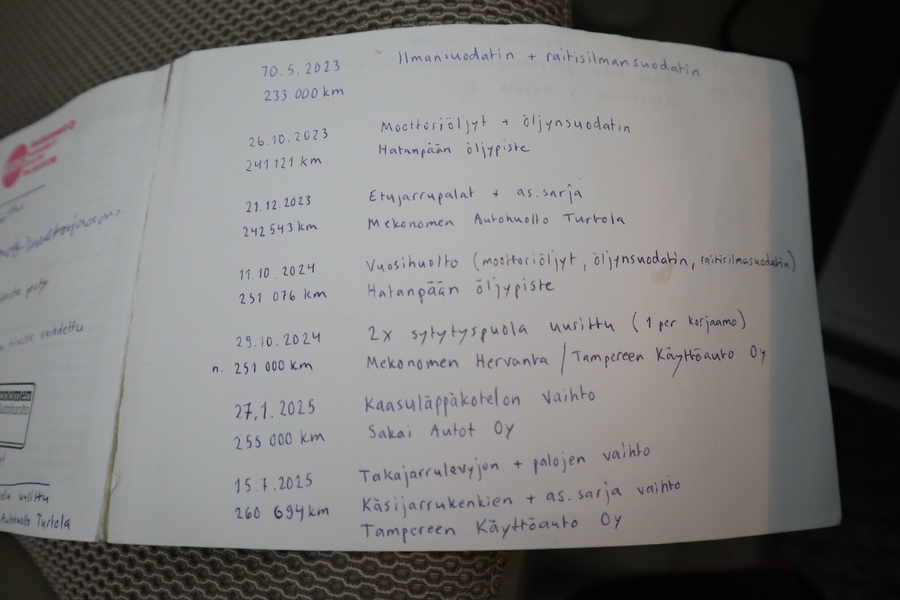 10.5.2023 Ilmansuodatin + raitisilmansuodatin
233 000 km
26.10.2023 Moottoriöljyt + öljynsuodatin
241 121 km Hatanpään öljypiste
21.12.2023 Etujarrupalat + as.sarja
242 543 km Mekonomen Autohuolto Turtola
11.10.2024 Vuosihuolto (moottoriöljyt, öljynsuodatin, raitisilmasuodatin)
251 076 km Hatanpään öljypiste
29.10.2024 2x sytytyspuola uusittu (1 per korjaamo)
n. 251 000 km Mekonomen Hervanta / Tampereen Käyttöauto Oy
27.1.2025 Kaasuläppäkotelon vaihto
255 000 km Sakai Autot Oy
15.7.2025 Takajarrulevyjen + palojen vaihto
260 694 km Käsijarrukenkien + as.sarja vaihto
Tampereen Käyttöauto Oy
nomen
uusittu
Autohuolto Turtola